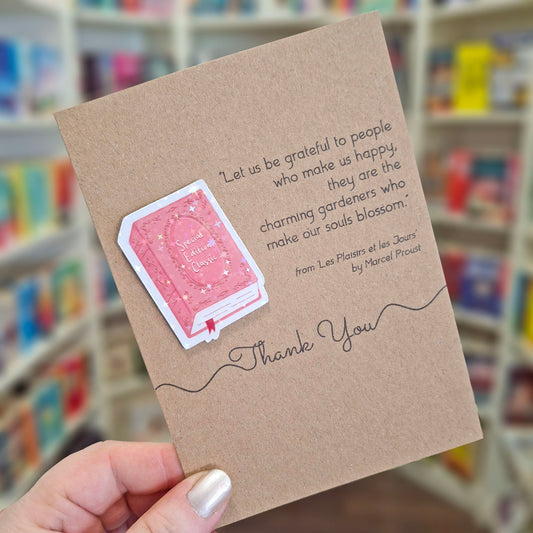 "Let us be grateful to people
who make us happy,
they are the
charming gardeners who
make our souls blossom."
from 'Les Plaisirs et les Jours'
by Marcel Proust
Special
Edition
Classic
Thank You